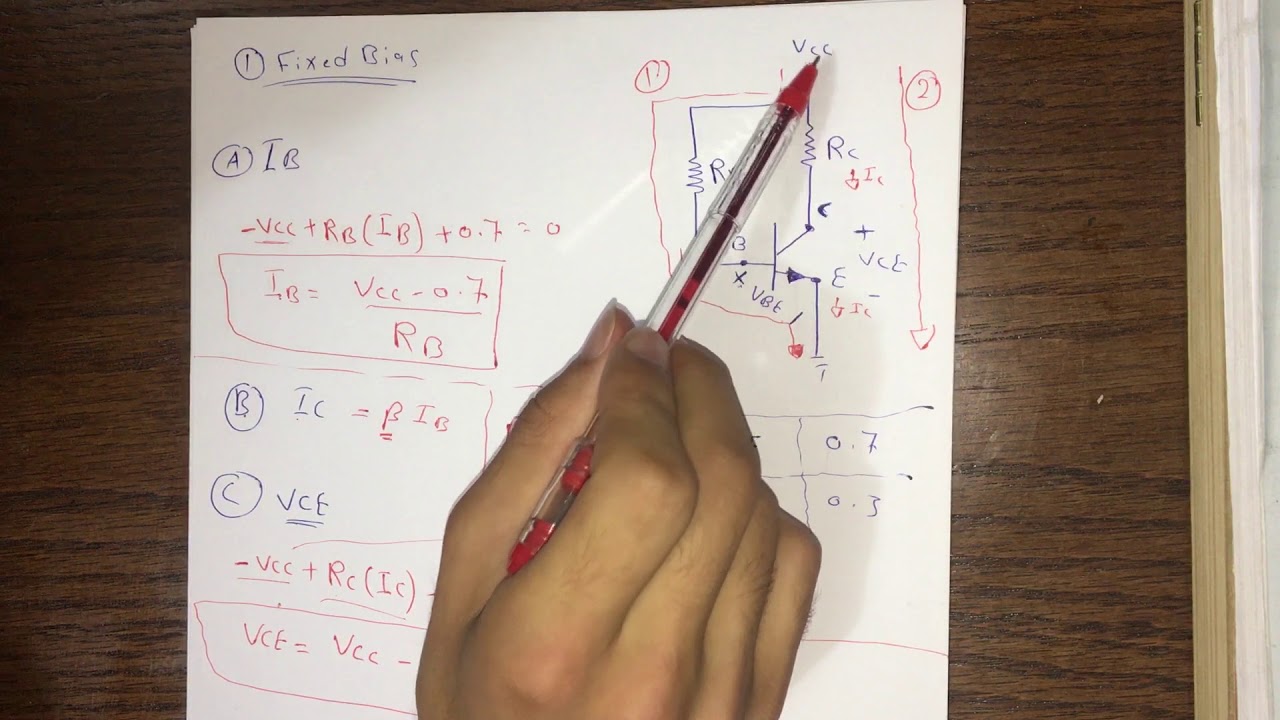 ① Fixed Bias
Ⓐ IB
-Vcc + RB(IB) + 0.7 = 0
IB = Vcc - 0.7
RB
Ⓑ IC = β IB
Ⓒ VCE
-Vcc + Rc(Ic)
VCE = Vcc -
Vcc
①'
②
Rc
Ic
C
B
+
VCE
-
X
E
VBE
Ic
0.7
0.3